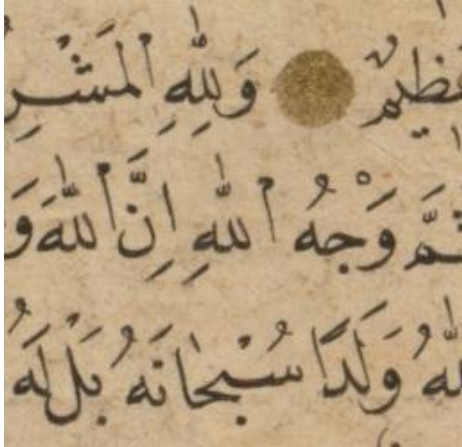 عَظِيمٌ وَلِلّٰهِ الْمَشْرِ
ثَمَّ وَجْهُ اللّٰهِ اِنَّ اللّٰهَ وَ
اللّٰهُ وَلَدًا سُبْحَانَهُ بَلْ لَهُ